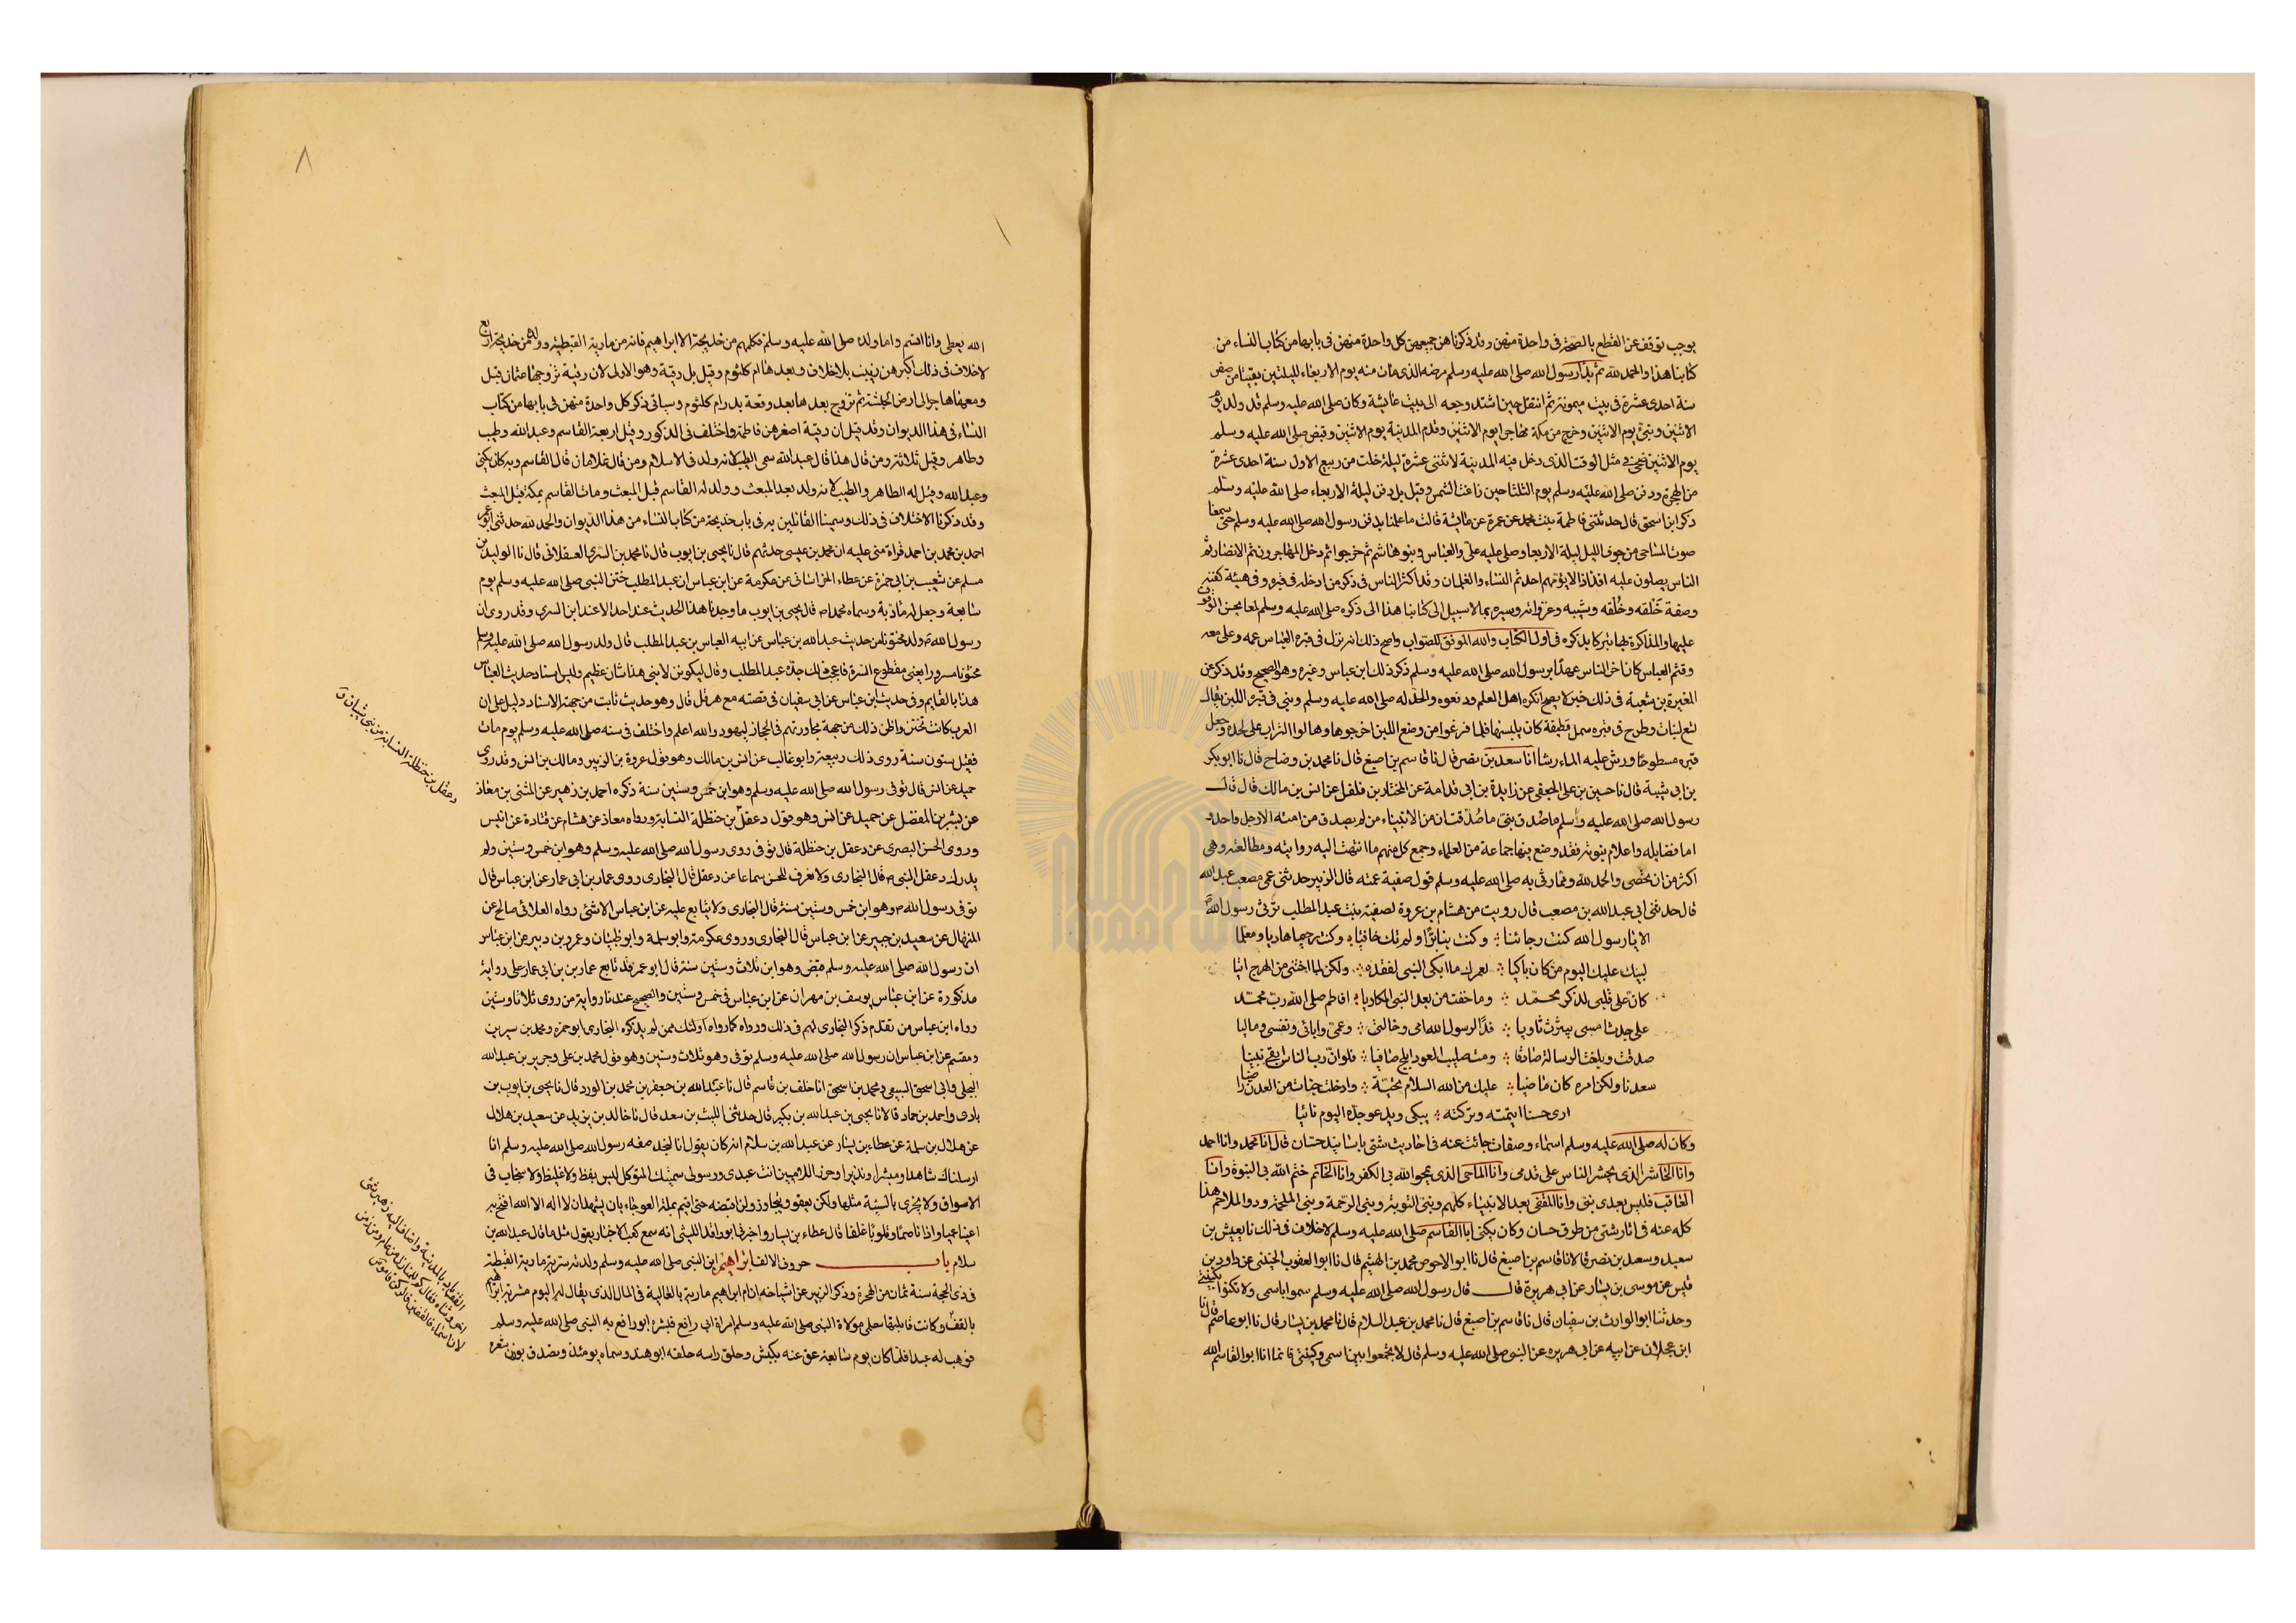 يوجب توقف عن القطع بالصحة فى واحدة منهن وقد ذكرناهن جميعهن كل واحدة منهن فى بابها من كتاب النساء من
كتابنا هذا والحمد لله ثم بدأ رسول الله صلى الله عليه وسلم مرضه الذى مات منه يوم الاربعاء لليلتين بقيتا من صفر
سنة احدى عشرة فى بيت ميمونة ثم انتقل حين اشتد وجعه الى بيت عائشة وكان صلى الله عليه وسلم قد ولد يوم
الاثنين ونبئ يوم الاثنين وخرج من مكة مهاجرا يوم الاثنين وقدم المدينة يوم الاثنين وقبض صلى الله عليه وسلم
يوم الاثنين ضحى فى مثل الوقت الذى دخل فيه المدينة لاثنتى عشرة ليلة خلت من ربيع الاول سنة احدى عشرة
من الهجرة ودفن صلى الله عليه وسلم يوم الثلثا حين زاغت الشمس وقيل بل دفن ليلة الاربعاء صلى الله عليه وسلم
ذكر ابن اسحق قال حدثتنى فاطمة بنت محمد عن عمرة عن عائشة قالت ما علمنا بدفن رسول الله صلى الله عليه وسلم حتى سمعنا
صوت المساحى من جوف الليل ليلة الاربعا وصلى عليه على والعباس وبنو هاشم ثم خرجوا ثم دخل المهاجرون ثم الانصار ثم
الناس يصلون عليه افذاذا لا يؤمهم احد ثم النساء والغلمان وقد اكثر الناس فى ذكر من ادخله فى قبره وفى هيئة كفنه
وصفة خَلقه وخُلقه وشيبه وغزواته وسيره بما لا سبيل الى كتابنا هذا الى ذكره صلى الله عليه وسلم لمعا يحسن الوقوف
عليها والمذاكرة بها تبركا بذكره فى اول الكتاب والله الموفق للصواب واصح ذلك انه نزل فى قبره العباس عمه وعلى معه
وقثم العباس كان اخر الناس عهدا برسول الله صلى الله عليه وسلم ذكر ذلك ابن عباس وغيره وهو الصحيح وقد ذكر عن
المغيرة بن شعبة فى ذلك خبر لا يصح انكره اهل العلم ودفعوه والحد له صلى الله عليه وسلم وبنى فى قبره اللبن يقال
تسع لبنات وطرح فى قبره سمل قطيفة كان يلبسها فلما فرغوا من وضع اللبن اخرجوها وهالوا التراب على لحده وجعل
قبره مسطوحا ورش عليه الماء رشا انا سعد بن نصر قال نا قاسم بن اصبغ قال نا محمد بن وضاح قال نا ابو بكر
بن ابى شيبة قال نا حسين بن على الجعفى عن زايدة بن ابى قدامة عن المختار بن فلفل عن انس بن مالك قال قال
رسول الله صلى الله عليه وسلم ما صُدق نبى ما صُدقت ان من الانبياء من لم يصدق من امته الا رجل واحد و
اما فضايله واعلام نبوته فقد وضع فيها جماعة من العلماء وجمع كل منهم ما انتهت اليه روايته ومطالعته وهى
اكثر من ان تحصى والحمد لله ومما رثى به صلى الله عليه وسلم قول صفية عمته قال الزبير حدثنى عمى مصعب بن عبد الله
قال حدثنى ابى عبد الله بن مصعب قال رويت من هشام بن عروة لصفية بنت عبد المطلب ترثى رسول الله
الا يا رسول الله كنت رجائنا ؞ وكنت بنا برًا ولم تك جافيا ؞ وكنت رحيما هاديا ومعلما
ليبك عليك اليوم من كان باكيا ؞ لعمرك ما ابكى النبى لفقده ؞ ولكن لما اخشى من الهرج اتيا
كان على قلبى لذكر محمد ؞ وما خفت من بعد النبى المكاويا ؞ افاطم صلى الله رب محمد
على جدث امسى بيثرب ثاويا ؞ فدا لرسول الله امى وخالتى ؞ وعمى وابائى ونفسى وماليا
صدقت وبلغت الرسالة صادقا ؞ ومت صليب العود ابلج صافيا ؞ فلو ان رب الناس ابقى نبينا
سعدنا ولكن امره كان ماضيا ؞ عليك من الله السلام تحية ؞ وادخلت جنات من العدن راضيا
ارى حسنا ايتمته وتركته ؞ يبكى ويدعو جده اليوم نائيا
وكان له صلى الله عليه وسلم اسماء وصفات جائت عنه فى احاديث شتى باسانيد حسان قال انا محمد وانا احمد
وانا الحاشر الذى يحشر الناس على قدمى وانا الماحى الذى يمحو الله بى الكفر وانا الخاتم ختم الله بى النبوة وانا
العاقب فليس بعدى نبى وانا المقفى بعد الانبياء كلهم ونبى التوبة ونبى الرحمة ونبى الملحمة وذو الملاحم هذا
كله عنه فى اثار شتى من طرق حسان وكان يكنى ابا القاسم صلى الله عليه وسلم لا خلاف فى ذلك نا يعيش بن
سعيد وسعد بن نصر قالا نا قاسم بن اصبغ قال نا ابو الاحوص محمد بن الهيثم قال نا ابو يعقوب الحنينى عن داود بن
قيس عن موسى بن يسار عن ابى هريرة قال قال رسول الله صلى الله عليه وسلم سموا باسمى ولا تكنوا بكنيتى
وحدثنا ابو الوارث بن سفيان قال نا قاسم بن اصبغ قال نا محمد بن عبد السلام قال نا محمد بن بشار قال نا ابو عاصم قال نا
ابن عجلان عن ابيه عن ابى هريره عن النبى صلى الله عليه وسلم قال لا تجمعوا بين اسمى وكنيتى فانما انا ابو القاسم الله
٨
الله يعطى وانا اقسم واما ولده صلى الله عليه وسلم فكلهم من خديجة الا ابراهيم فانه من مارية القبطية وولده من خديجة اربع
لا خلاف فى ذلك اكبرهن زينب بلا خلاف وبعدها ام كلثوم وقيل بل رقية وهو الاولى لان رقية تزوجها عثمان قبل
ومعها هاجر الى ارض الحبشة ثم تزوج بعدها بعد وقعة بدر ام كلثوم وسياتى ذكر كل واحدة منهن فى بابها من كتاب
النساء فى هذا الديوان وقد قيل ان رقية اصغرهن فاطمة واختلف فى الذكور وقيل اربعة القاسم وعبد الله وطيب
وطاهر وقيل ثلاثة ومن قال هذا قال عبد الله سمى الطيب لانه ولد فى الاسلام ومن قال غلامان قال القاسم وبه كان يكنى
وعبد الله وقيل له الطاهر والطيب لانه ولد بعد المبعث وولد له القاسم قبل المبعث ومات القاسم بمكة قبل المبعث
وقد ذكرنا الاختلاف فى ذلك وسمينا القائلين به فى باب خديجة من كتاب النساء من هذا الديوان والحمد لله حدثنى ابو عمر
احمد بن محمد بن احمد قراءة منى عليه ان محمد بن عيسى حدثهم قال نا يحيى بن ايوب قال نا محمد بن السرى العسقلانى قال نا الوليد بن
مسلم عن شعيب بن ابى حمزة عن عطاء الخراسانى عن عكرمة عن ابن عباس ان عبد المطلب ختن النبى صلى الله عليه وسلم يوم
سابعة وجعل له مادبة وسماه محمدا م قال يحيى بن ايوب ما وجدنا هذا الحديث عند احد الا عند ابن السرى وقد روى ان
رسول الله م ولد مختونا من حديث عبد الله بن عباس عن ابيه العباس بن عبد المطلب قال ولد رسول الله صلى الله عليه وسلم
مختونا مسرورا يعنى مقطوع السرة فاعجب ذلك جده عبد المطلب وقال ليكونن لابنى هذا شان عظيم وليس اسناد حديث العباس
هذا بالقايم وفى حديث ابن عباس عن ابى سفيان فى قصته مع هرقل قال وهو حديث ثابت من جهة الاسناد دليل على ان
العرب كانت تختتن واظن ذلك من جهة مجاورتهم فى الحجاز ليهود والله اعلم واختلف فى سنه صلى الله عليه وسلم يوم مات
فقيل ستون سنة روى ذلك ربيعة وابو غالب عن انس بن مالك وهو قول عروة بن الزبير ومالك بن انس وقد روى
حميد عن انس قال توفى رسول الله صلى الله عليه وسلم وهو ابن خمس وستين سنة ذكره احمد بن زهير عن المثنى بن معاذ
عن بشر بن المفضل عن حميد عن انس وهو قول دغفل بن حنظلة النسابة ورواه معاذ عن هشام عن قتادة عن انس
وروى الحسن البصرى عن دغفل بن حنظلة قال توفى روى رسول الله صلى الله عليه وسلم وهو ابن خمس وستين ولم
يدرك دغفل النبى م قال البخارى ولا نعرف للحسن سماعا عن دغفل قال البخارى روى عمار بن ابى عمار عن ابن عباس قال
توفى رسول الله م وهو ابن خمس وستين سنة قال البخارى ولا يتابع عليه عن ابن عباس الا شئ رواه العلا بن صالح عن
المنهال عن سعيد بن جبير عن ابن عباس قال البخارى وروى عكرمة وابو سلمة وابو ظبيان وعمرو بن دينر عن ابن عباس
ان رسول الله صلى الله عليه وسلم قبض وهو ابن ثلاث وستين سنة قال ابو عمر قد تابع عمار بن ابى عمار على رواية
مذكورة عن ابن عباس يوسف بن مهران عن ابن عباس فى خمس وستين والصحيح عندنا رواية من روى ثلاثا وستين
رواه ابن عباس من تقدم ذكر البخارى لهم فى ذلك ورواه كما رواه اولئك ممن لم يذكره البخارى ابو حمزه ومحمد بن سيرين
ومقسم عن ابن عباس ان رسول الله صلى الله عليه وسلم توفى وهو ثلاث وستين وهو قول محمد بن على وجرير بن عبد الله
البجلى وابى اسحق السبيعى ومحمد بن اسحق انا خلف بن قاسم قال نا عبد الله بن جعفر بن محمد بن الورد قال نا يحيى بن ايوب بن
بادى واحمد بن حماد قالا نا يحيى بن عبد الله بن بكير قال حدثنى الليث بن سعد قال نا خالد بن يزيد عن سعيد بن هلال
عن هلال بن سلمة عن عطاء بن يسار عن عبد الله بن سلام انه كان يقول انا لنجد صفه رسول الله صلى الله عليه وسلم انا
ارسلناك شاهدا ومبشرا ونذيرا وحرزا للاميين انت عبدى ورسولى سميتك المتوكل ليس بفظ ولا غليظ ولا سخاب فى
الاسواق ولا يجزى بالسيئة مثلها ولكن يعفو ويتجاوز ولن اقبضه حتى اقيم به الملة العوجاء بان يشهد ان لا اله الا الله افتح به
اعينا عميا واذانا صما وقلوبا غلفا قال عطاء بن يسار واخبرنى ابو واقد الليثى انه سمع كعب الاحبار يقول مثل ما قال عبد الله بن
سلام باب حروف الالف ابراهيم ابن النبى صلى الله عليه وسلم ولدته سريته مارية القبطية
فى ذى الحجة سنة ثمان من الهجرة وذكر الزبير عن اشياخه ان ام ابراهيم مارية بالعالية فى المال الذى يقال له اليوم مشربة ابراهيم
بالقف وكانت قابلتها سلمى مولاة النبى صلى الله عليه وسلم امراة ابى رافع فبشره ابو رافع به النبى صلى الله عليه وسلم
فوهب له عبدا فلما كان يوم سابعة عق عنه بكبش وحلق راسه حلقه ابو هند وسماه يومئذ وتصدق بوزن شعره
دغفل بن حنظلة النسابة من بنى شيبان ق
القف واد بالمدينة واضاف اليه زهير شئ